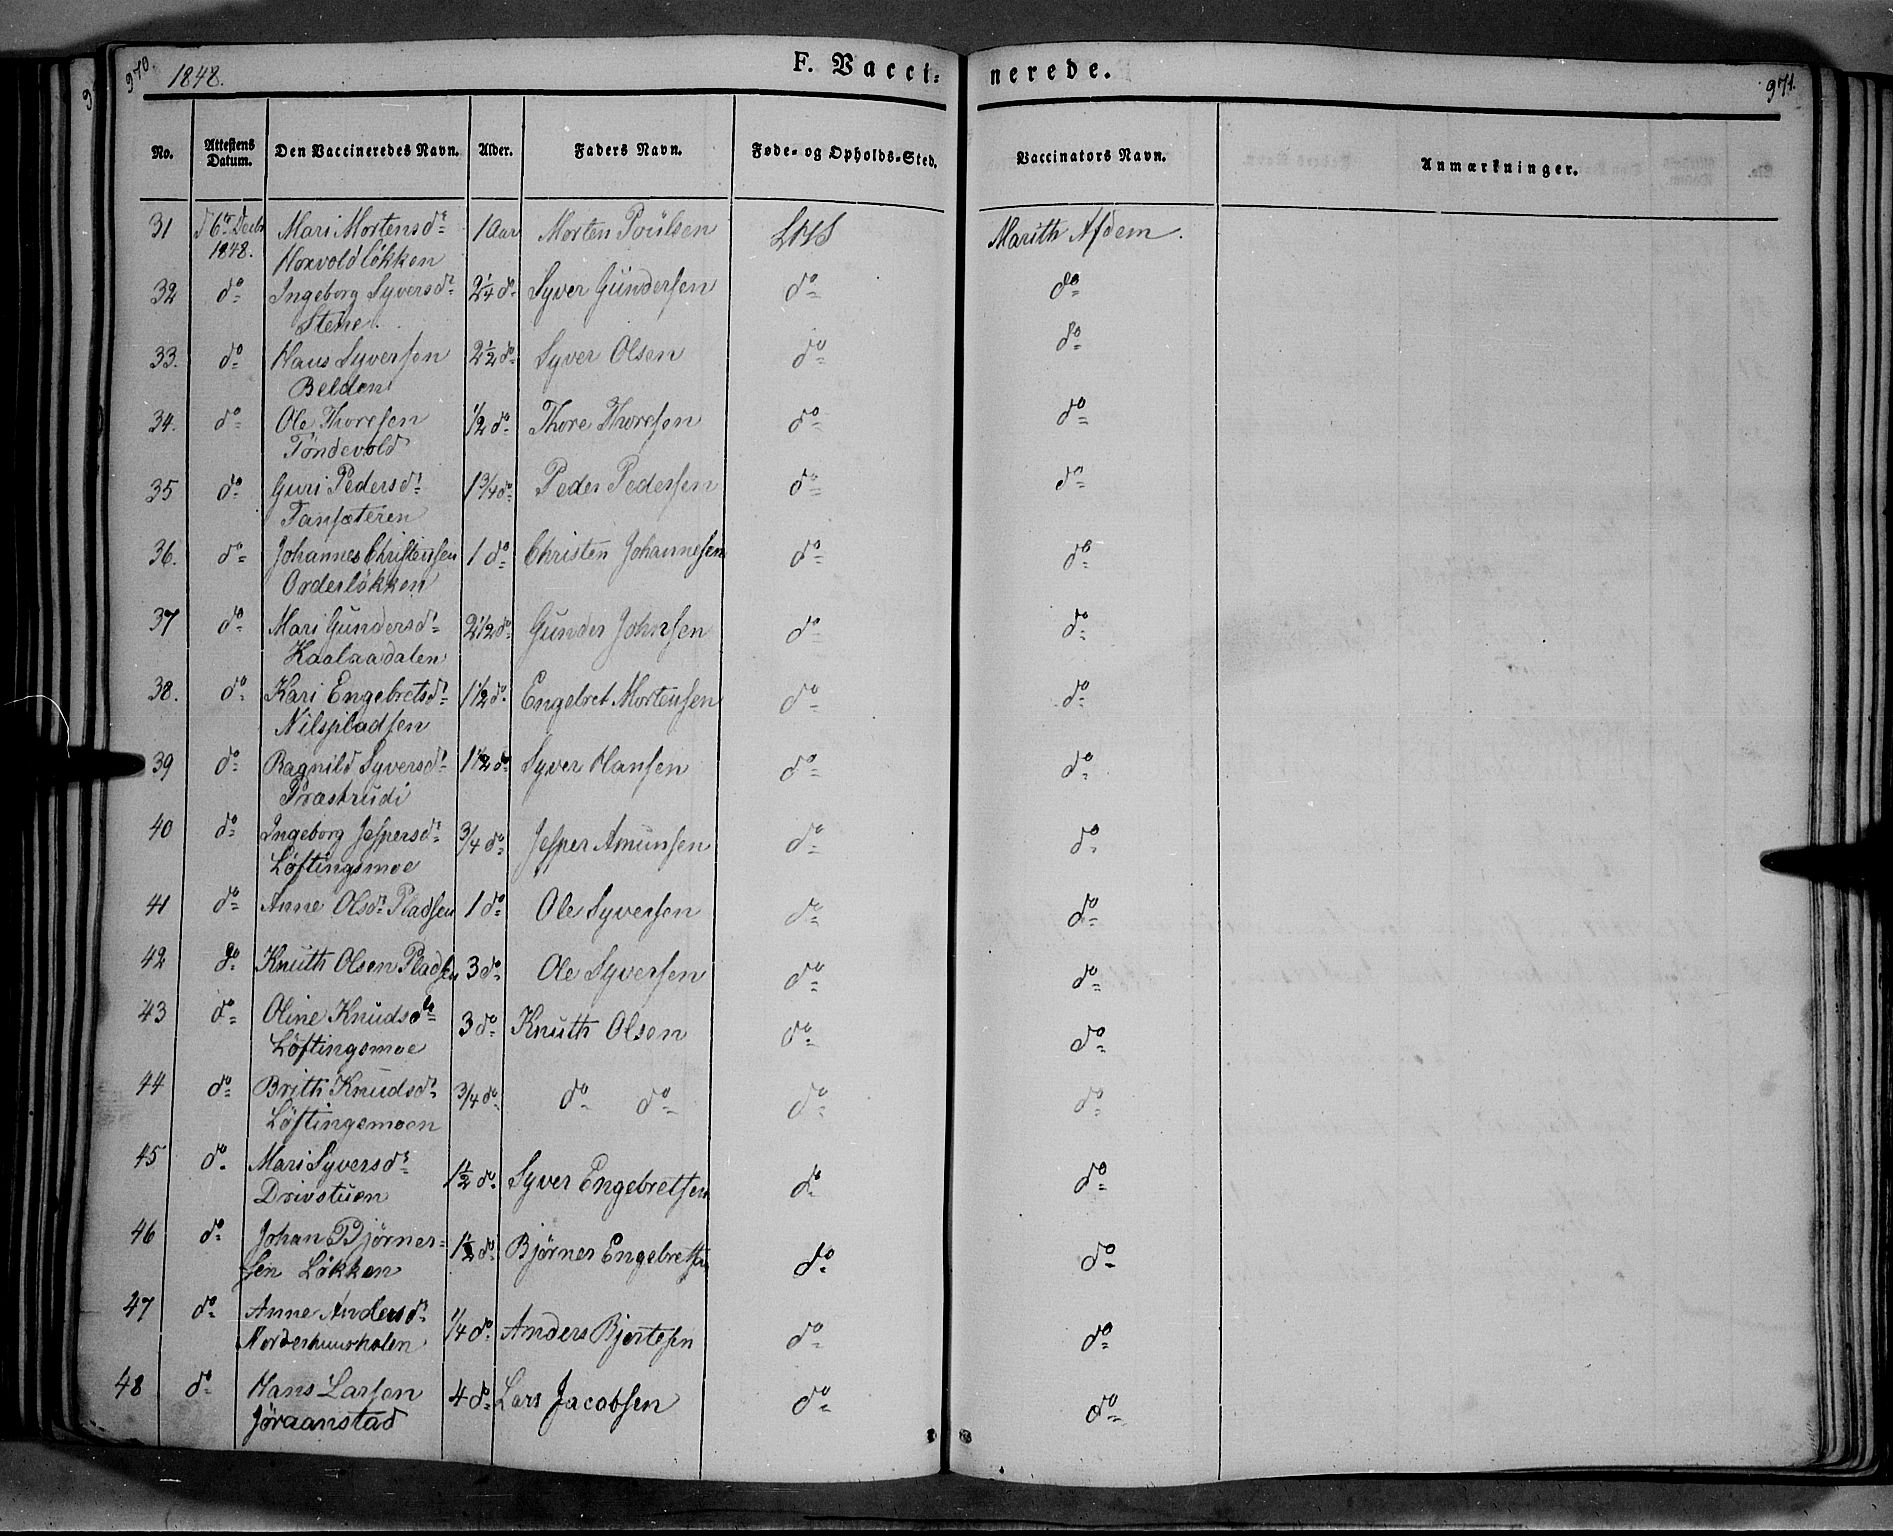 970. 1848. F. Vacci- nerede. 971.
No. Attestens Datum. Den Vaccineredes Navn. Alder. Faders Navn. Føde- og Opholds-Sted. Vaccinators Navn. Anmærkninger.
31 d 6te Decbr 1848. Mari Mortensdr 1 Aar Morten Poülsen Marith Afdem.
Hoxvoldløkken
32 do Ingeborg Syversdr 2 1/4 do Syver Gündersen do do
Stene.
33. do Hans Syversen 2 1/2 do Syver Olsen do do
Belden
34. do Ole Thoresen 1/2 do Thore Thoresen do do
Töndevold
35 do Guri Pedersdr 1 3/4 do Peder Pedersen do do
Fansæteren
36. do Johannes Christensen 1 do Christen Johannesen do do
Orderlökken
37 do Mari Gundersdr 2 1/2 do Gunder Johnsen do do
Kaalaadalen
38. do Kari Engebretsdr 1 1/2 do Engebret Mortensen do do
Nilspladsen
39 do Ragnild Syversdr 1 1/2 do Syver Hansen do do
Præstrudi
40 do Ingeborg Jespersdr 3/4 do Jesper Amunsen do do
Löftingsmoe
41 do Anne Olsdr Pladsen 1 do Ole Syversen do do
42 do Knuth Olsen Pladsen 3 do Ole Syversen do do
43 do Oline Knudsdr 3 do Knuth Olsen do do
Löftingsmoe
44 do Brith Knudsdr 3/4 do do do do do
Löftingsmoen
45 do Mari Syversdr 1 1/2 do Syver Engebretsen do do
Drivstuen
46 do Johan Bjørner- 1 1/2 do Bjørner Engebretsen do do
sen Løkken
47 do Anne Andersdr 1/4 do Anders Bjertesen do do
48 do Hans Larsen 4 do Lars Jacobsen do do
Jøraanstad